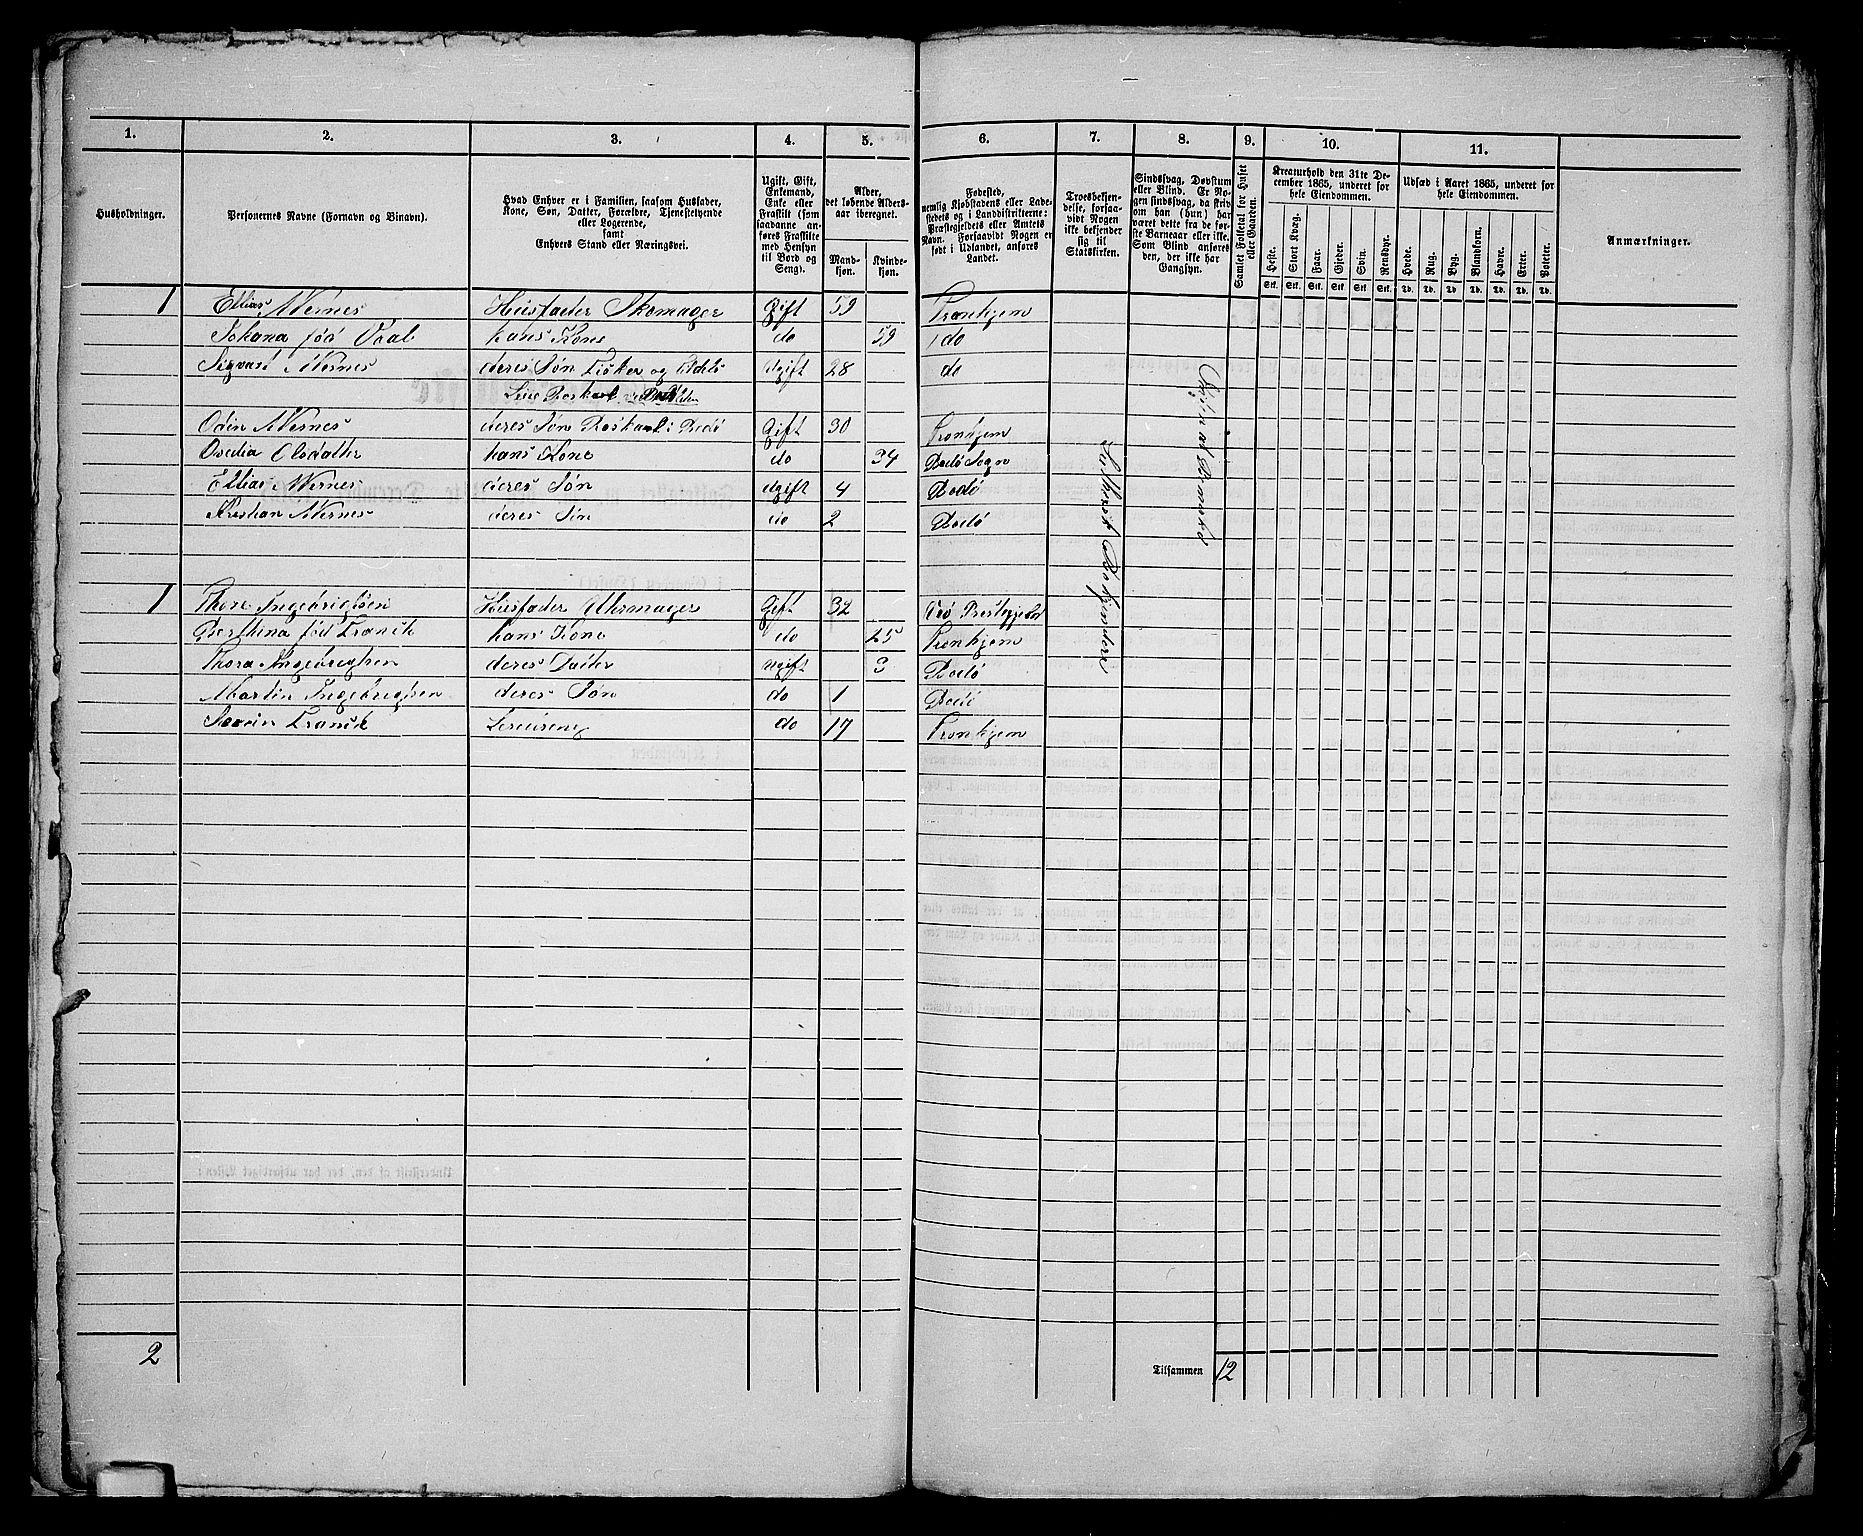 1. 2. 3. 4. 5. 6. 7. 8. 9. 10. 11.
Husholdninger.
Personernes Navne (Fornavn og Binavn).
Hvad Enhver er i Familien, saasom Husfader,
Kone, Søn, Datter, Forældre, Tjenestetyende
eller Logerende,
samt
Enhvers Stand eller Næringsvei.
Ugift, Gift,
Enkemand,
Enke eller
Fraskilt (som
saadanne an-
føres Fraskilte
med Hensyn
til Bord og
Seng).
Alder,
det løbende Alders-
aar iberegnet.
Mand-
kjøn.
Kvinde-
kjøn.
Fødested,
nemlig Kjøbstadens eller Lade-
stedets og i Landdistrikterne:
Præstegjeldets eller Amtets
Navn. Forsaavidt Nogen er
født i Udlandet, anføres
Landet.
Troesbekjen-
delse, forsaa-
vidt Nogen
ikke bekjender
sig til
Statskirken.
Sindssvag, Døvstum
eller Blind. Er No-
gen sindssvag, da skriv
om han (hun) har
været dette fra de før-
ste Barneaar eller ikke.
Som Blind anføres
den, der ikke har
Gangsyn.
Samlet Folketal for Huset
eller Gaarden.
Kreaturhold den 31te De-
cember 1865, underet for
hele Eiendommen.
Heste. Stort Kvæg. Faar. Gjeder. Svin. Rensdyr.
Stk. Stk. Stk. Stk. Stk. Stk.
Udsæd i Aaret 1865, underet for
hele Eiendommen.
Hvede. Rug. Byg. Blandkorn. Havre. Erter. Poteter.
Td. Td. Td. Td. Td. Td. Td.
Anmærkninger.
1 Ellias Mernes Husfader Skomager Gift 59 Tronhjem
Johana fød Vaal hans Kone do 59 do
Sigvart Mernes deres Søn Fisker og Ugift 28 do
Odin Mernes deres Søn i Bodø Gift 30 Tronhjem
Olsdatter hans Kone do 34 Bodø Sogn
Ellias Mernes deres Søn ugift 4 Bodø
Kristian Mernes deres Søn do 2 Bodø
1 Thore Ingebrigtsen Husfader Uhrmager Gift 32
Berthina fød Tranck hans Kone do 25 Tronhjem
Thora Ingebrigtsen deres Datter ugift 3 Bodø
Martin Ingebrigtsen deres Søn do 1 Bodø
do 17 Tronhjem
2
Tilsammen 12